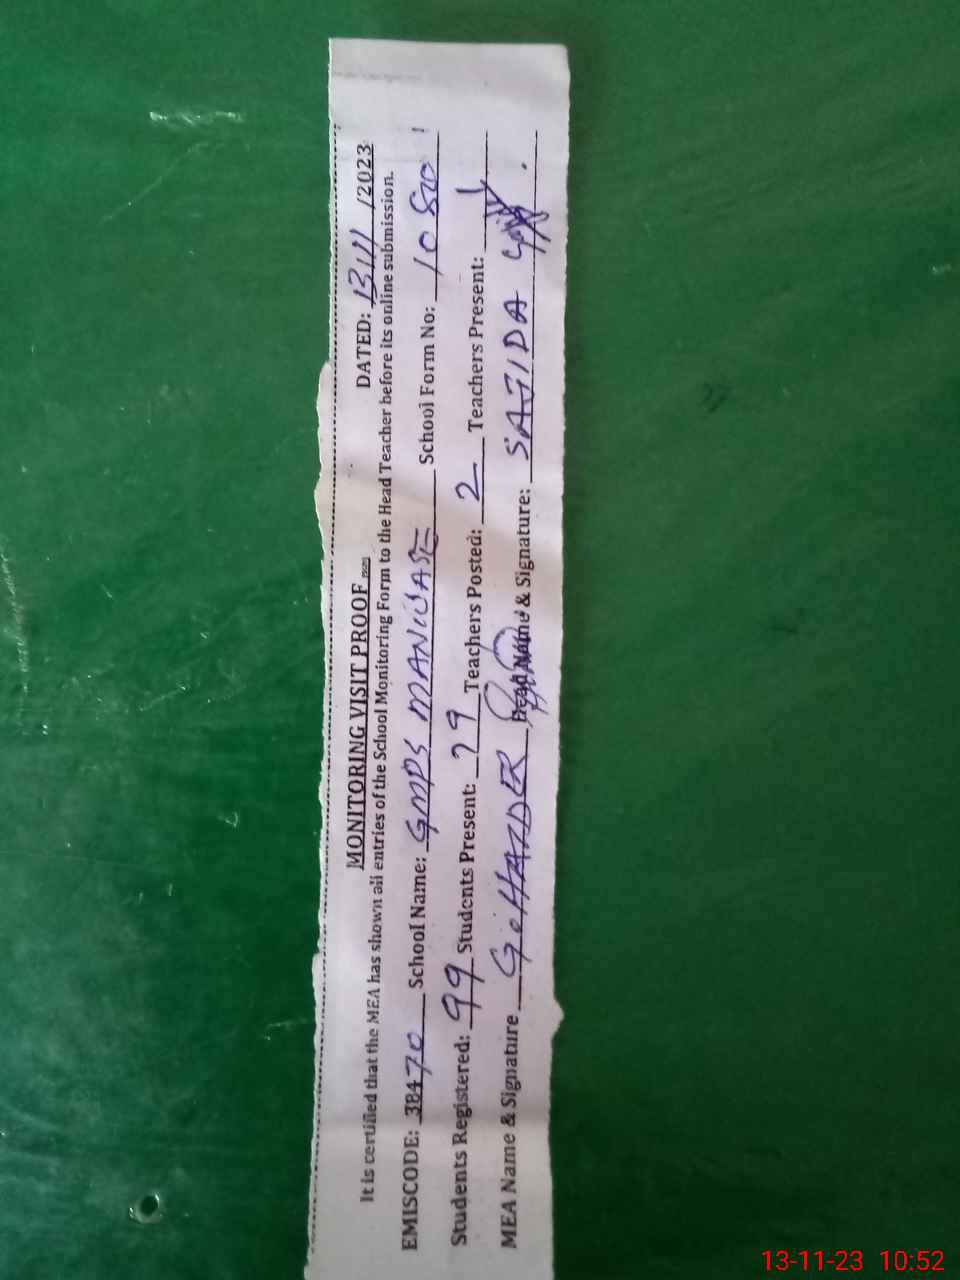 MONITORING VISIT PROOF DATED: 13/11/2023
It is certified that the MEA has shown all entries of the School Monitoring Form to the Head Teacher before its online submission.
EMISCODE: 38470 School Name: GMPS MANWASE School Form No: 10820
Students Registered: 99 Students Present: 79 Teachers Posted: 2 Teachers Present: 1
MEA Name & Signature GOHANDER Head Name & Signature: SAJIDA
13-11-23 10:52